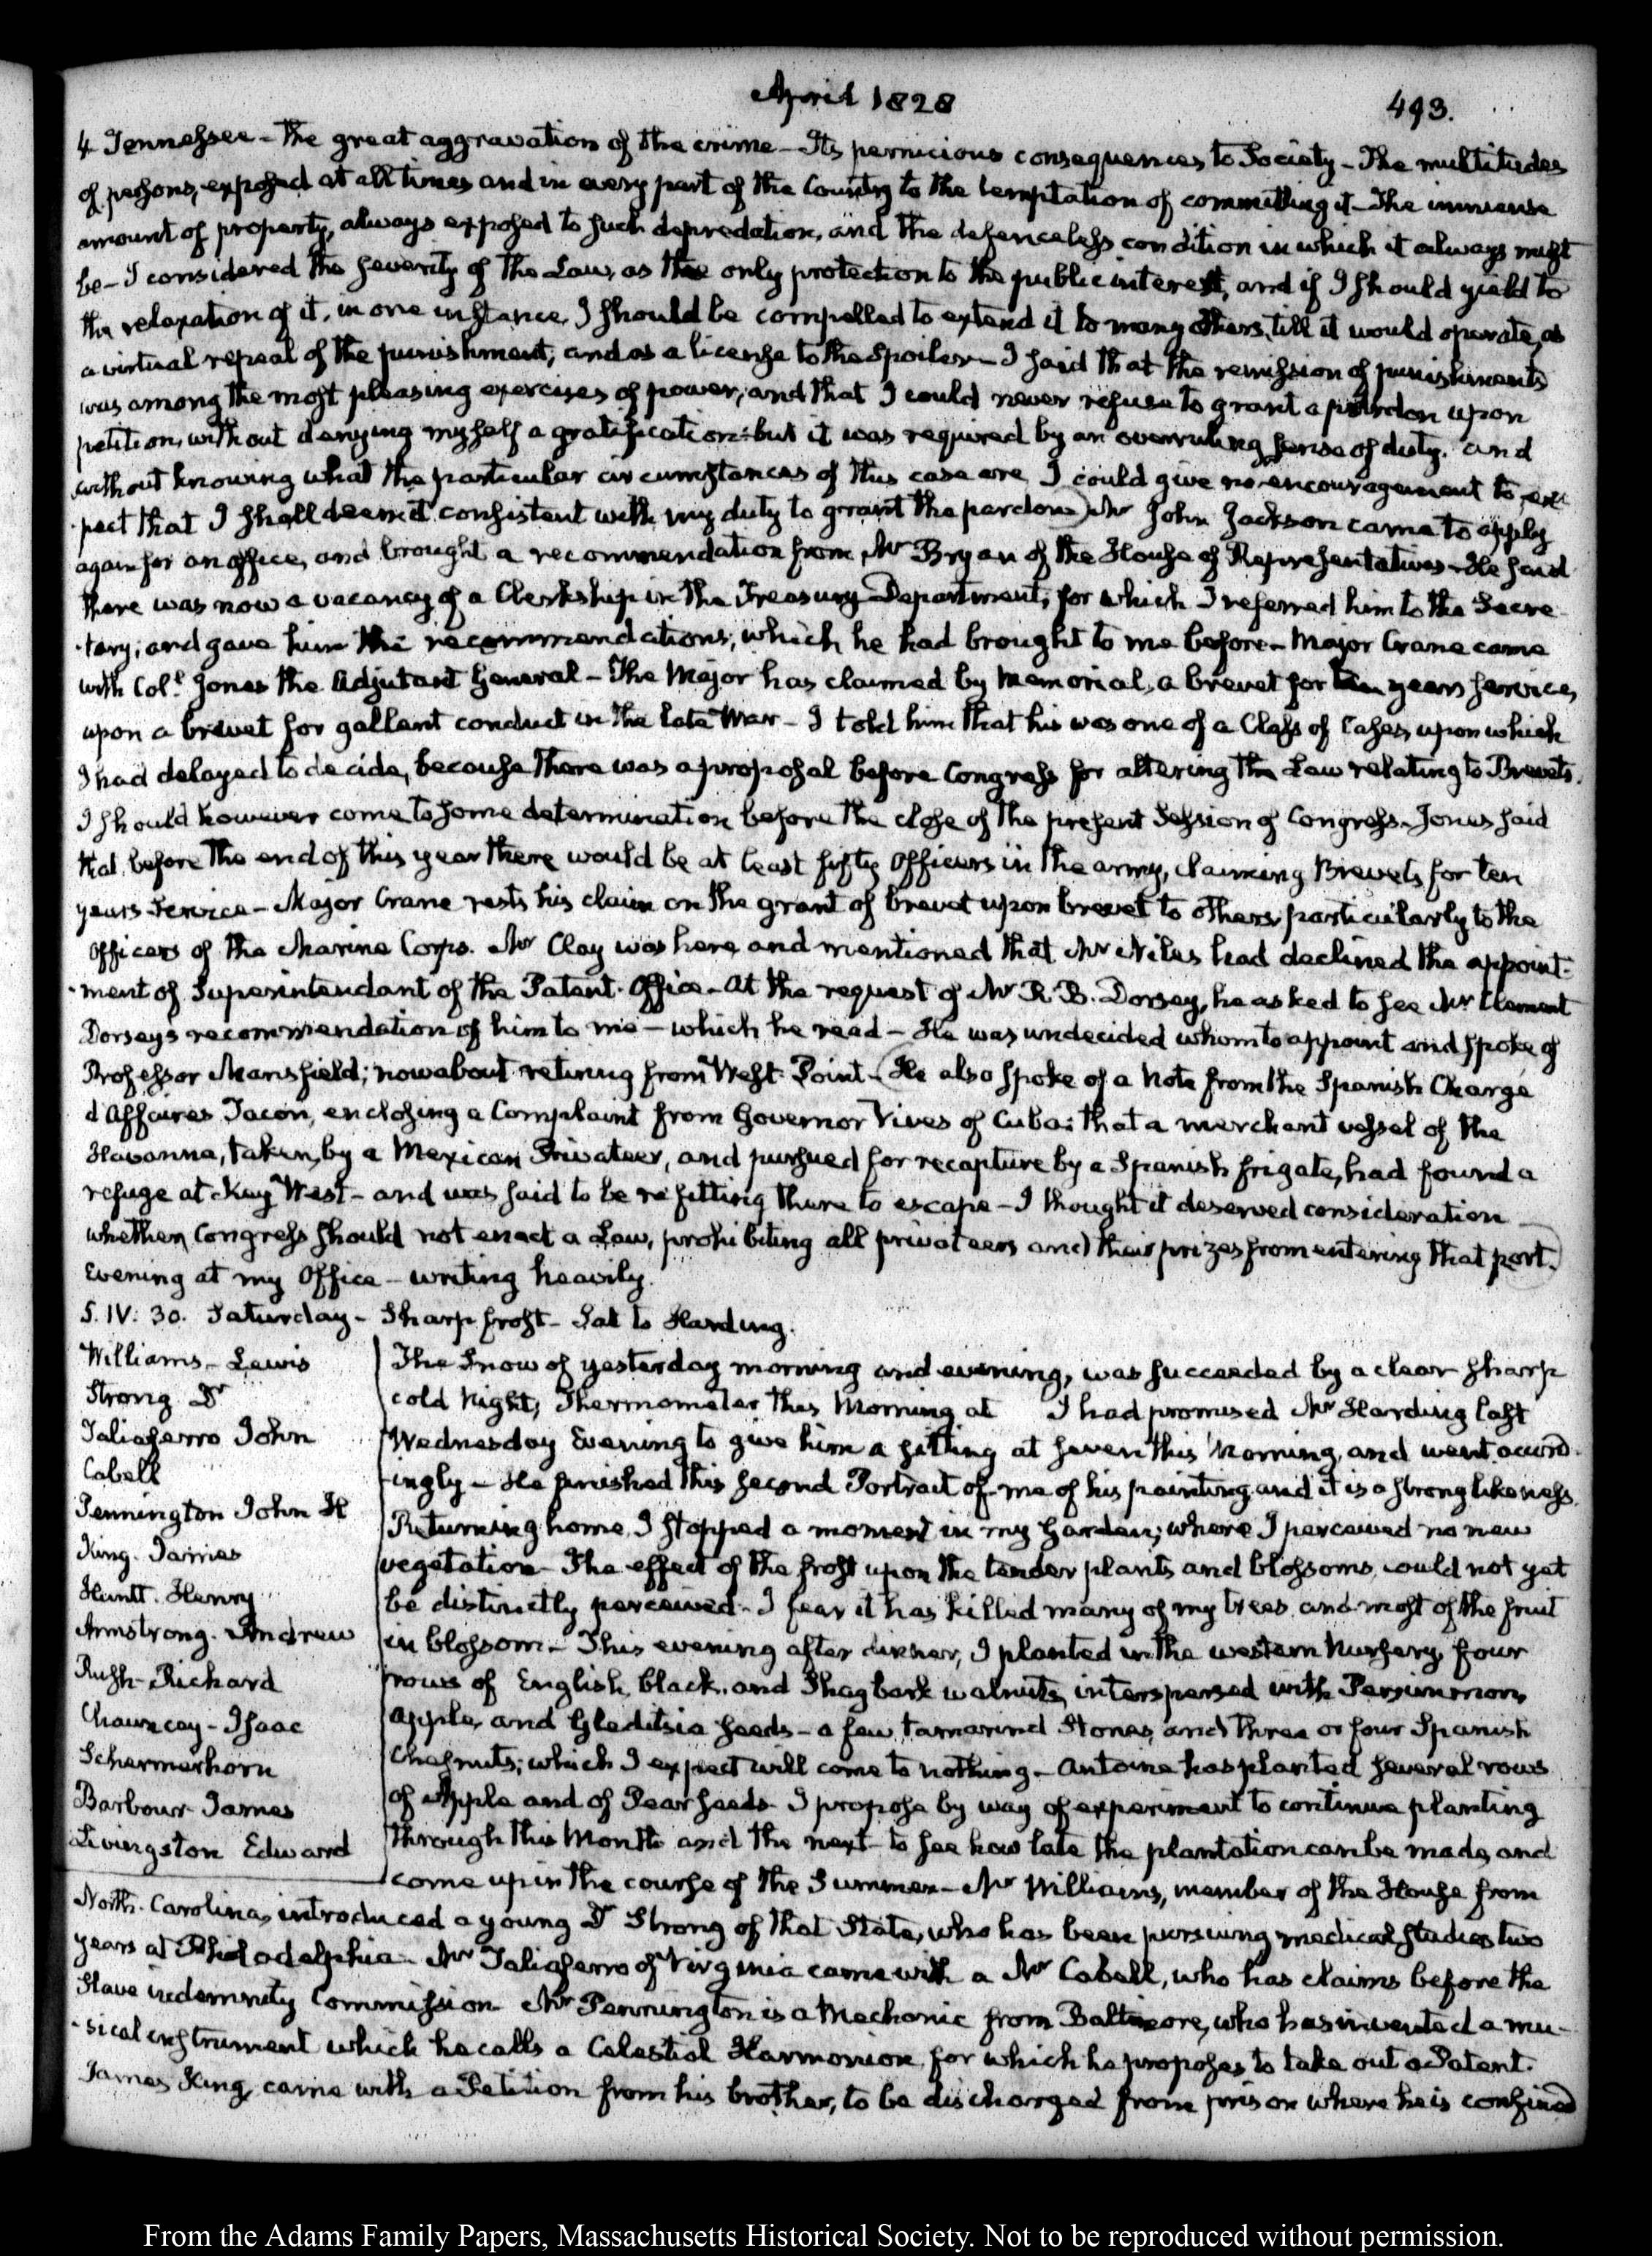 April 1828
493.
4 Tennessee - The great aggravation of the crime - Its pernicious consequences to Society - The multitudes
of persons, exposed at all times and in every part of the Country to the temptation of committing it - The immense
amount of property, always exposed to such depredation, and the defenceless condition in which it always must
be - I considered the severity of the Law, as the only protection to the public interest, and if I should yield to
the relaxation of it, in one instance, I should be compelled to extend it to many others, till it would operate, as
a virtual repeal of the punishment, and as a license to the Spoiler - I said that the remission of punishments
was among the most pleasing exercises of power, and that I could never refuse to grant a pardon upon
petition, without denying myself a gratification: but it was required by an overruling sense of duty. and
without knowing what the particular circumstances of this case are, I could give no encouragement to ex-
-pect that I shall deem it consistent with my duty to grant the pardon) Mr John Jackson came to apply
again for an office, and brought a recommendation from Mr Bryan of the House of Representatives - He said
there was now a vacancy of a Clerkship in the Treasury Department; for which I referred him to the Secre-
-tary; and gave him the recommendations, which he had brought to me before - Major Crane came
with Coll Jones the Adjutant General - The Major has claimed by Memorial, a brevet for ten years service,
upon a brevet for gallant conduct in the late War - I told him that his was one of a Class of Cases, upon which
I had delayed to decide, because there was a proposal before Congress for altering the Law relating to Brevets.
I should however come to some determination before the close of the present Session of Congress. Jones said
that before the end of this year there would be at least fifty Officers in the army, claiming Brevets for ten
years Service - Major Crane rests his claim on the grant of brevet upon brevet to others, particularly to the
Officers of the Marine Corps. Mr Clay was here, and mentioned that Mr Niles had declined the appoint-
-ment of Superintendant of the Patent Office - At the request of Mr R. B. Dorsey, he asked to see Mr Clement
Dorseys recommendation of him to me - which he read - He was undecided whom to appoint and spoke of
Professor Mansfield; now about retiring from West Point - (He also spoke of a Note from the Spanish Charge
d'Affaires Tacon, enclosing a Complaint from Governor Vives of Cuba: that a merchant vessel of the
Havanna, taken, by a Mexican Privateer, and pursued for recapture by a Spanish frigate, had found a
refuge at Key West - and was said to be refitting there to escape - I thought it deserved consideration
whether Congress should not enact a Law, prohibiting all privateers and their prizes from entering that port.)
Evening at my Office - writing heavily.
5. IV: 30. Saturday - Sharp frost - Sat to Harding.
Williams - Lewis
Strong Dr
Taliaferro John
Cabell
Pennington John H
King. James
Huntt. Henry
Armstrong. Andrew
Rush - Richard
Chauncey - Isaac
Schermerhorn
Barbour James
Livingston Edward
The Snow of yesterday morning and evening, was succeeded by a clear sharp
cold Night, Thermometer this Morning at I had promised Mr Harding last
Wednesday Evening to give him a sitting at seven this Morning, and went accord-
-ingly - He finished this second Portrait of me of his painting, and it is a strong likeness.
Returning home, I stopped a moment in my Garden; where I perceived no new
vegetation - The effect of the frost upon the tender plants and blossoms, could not yet
be distinctly perceived - I fear it has killed many of my trees, and most of the fruit
in blossom - This evening after dinner, I planted in the western Nursery, four
rows of English, black, and Shagbark walnuts, interspersed with Persimmon,
Apple, and Gleditsia seeds - a few tamarind Stones, and three or four Spanish
Chesnuts; which I expect will come to nothing - Antoine has planted several rows
of Apple and of Pear seeds - I propose by way of experiment to continue planting
through this Month and the next - to see how late the plantation can be made, and
come up in the course of the Summer - Mr Williams, member of the House from
North-Carolina, introduced a young Dr Strong of that State, who has been pursuing medical studies two
years at Philadelphia. Mr Taliaferro of Virginia came with a Mr Cabell, who has claims before the
Slave indemnity Commission Mr Pennington is a Mechanic from Baltimore, who has invented a mu-
-sical instrument which he calls a Celestial Harmonion, for which he proposes to take out a Patent.
James King came with a Petition from his brother, to be discharged from prison where he is confined
From the Adams Family Papers, Massachusetts Historical Society. Not to be reproduced without permission.